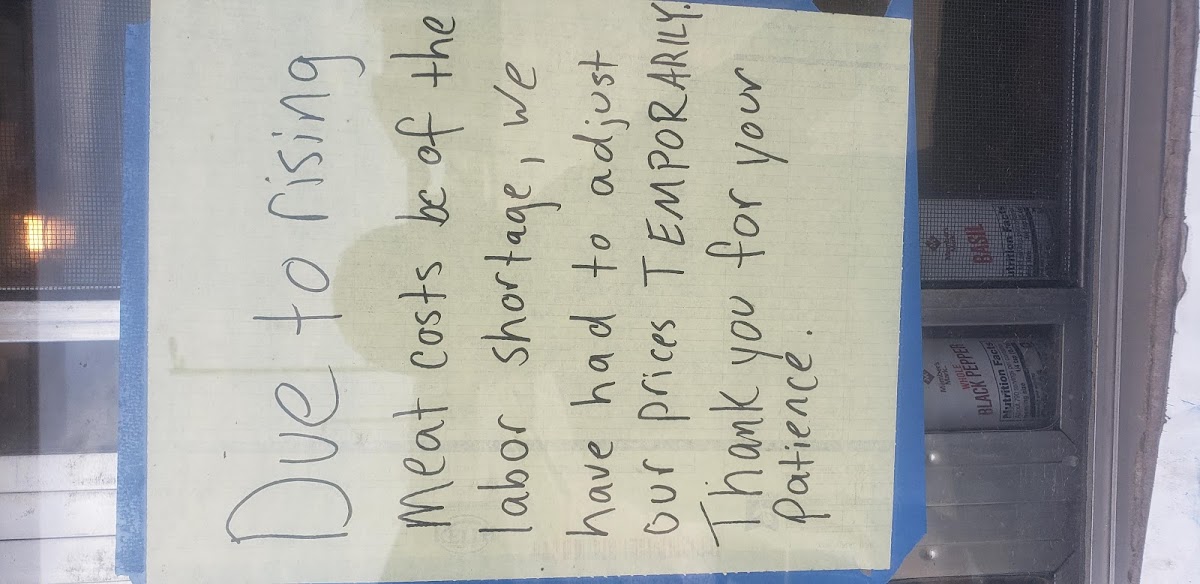 Due to rising
Meat costs bc of the
labor shortage, we
have had to adjust
our prices TEMPORARILY.
Thank you for your
patience.
Member's Mark
BASIL
Nutrition Facts
Member's Mark
WHOLE
BLACK PEPPER
Nutrition Facts